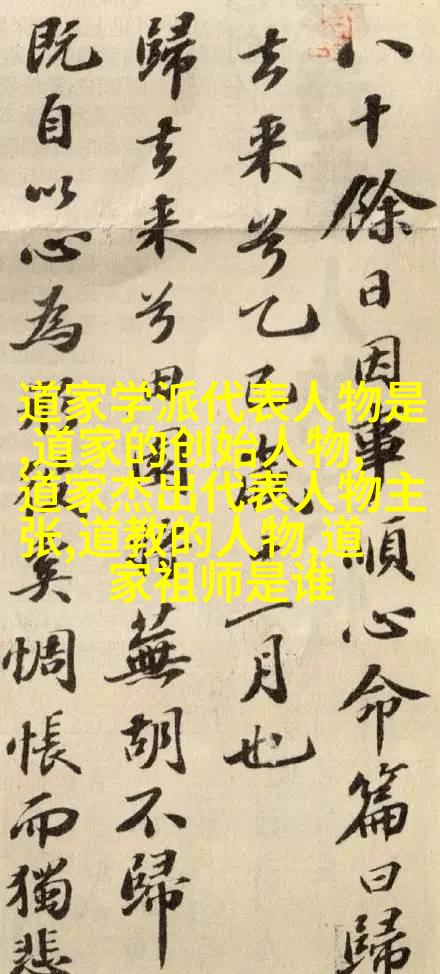 八十餘日因事順心命篇曰歸
去来兮乙巳歲十一月也
歸去来兮田園將蕪胡不歸
既自以心為形役奚惆悵而獨悲
道家学派代表人物是
,道家的创始人物,
道家杰出代表人物主
张,道教的人物,道
家祖师是谁